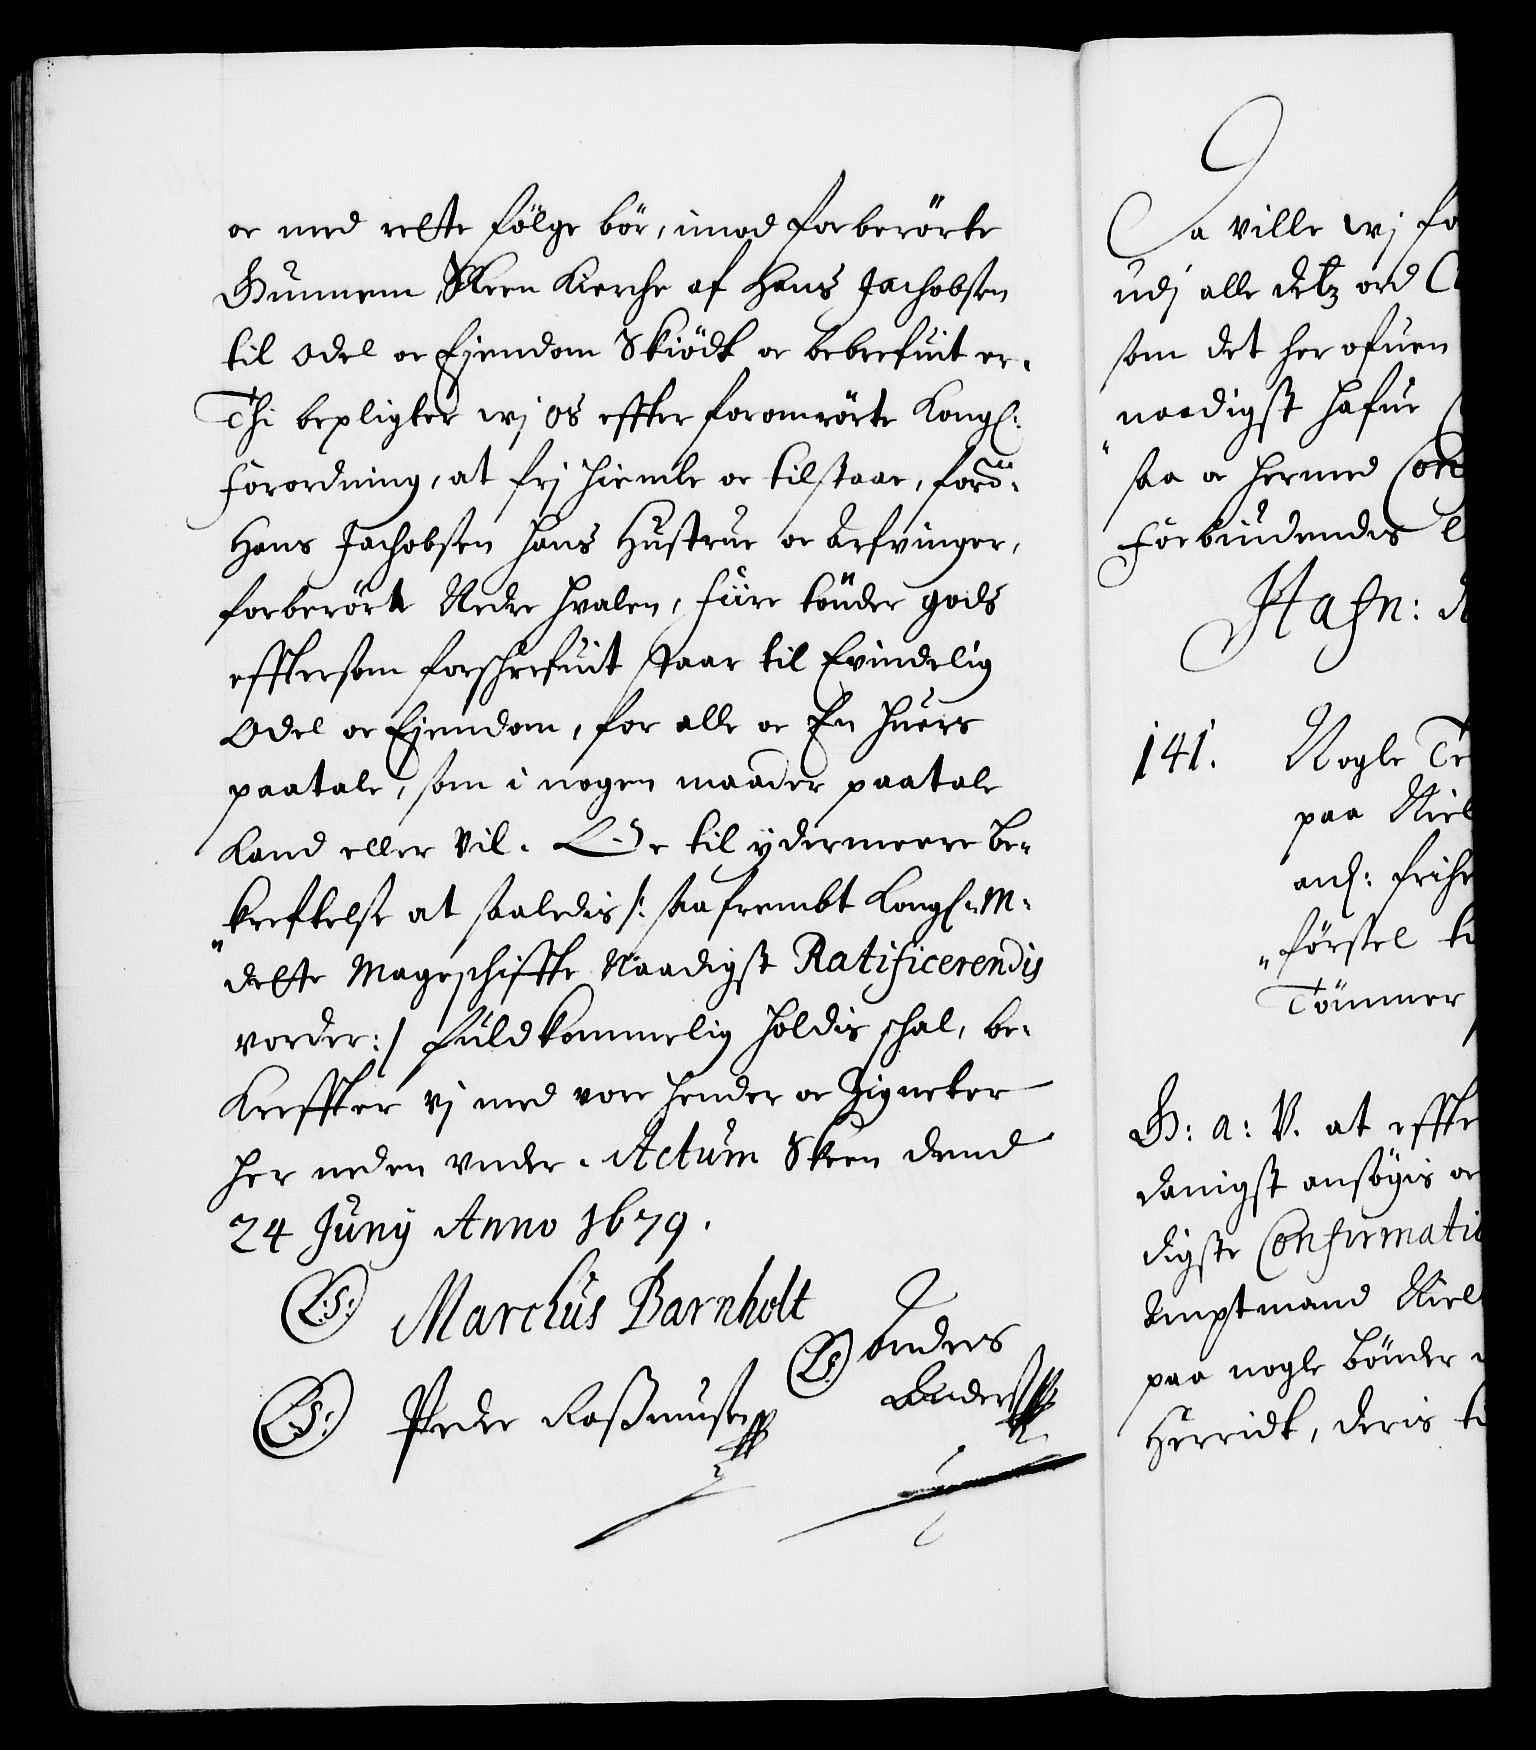 oc med rette fölge bör, imod forberörte
Gunnem Skeen Kierche af Hans Jachobsen
til Odel oc Ejendom Skiödt oc bebrefuit er.
Thi bepligter wj os effter foromrörte Kongl:
Forordning, at frj hiemle oc tilstaar, ford:
Hans Jachobsen hans Hustrue oc Arfvinger,
forberört Nedre Hvalen, fiire tönder gods
efftersom forschrefuit staar til Evindelig
Odel oc Ejendom, for alle oc En huers
paatale, som i nogen maader paatale
kand eller vil. Oc til ydermeere be-
krefftelse at saaledis /: saafrembt Kongl: M:
dette Mageschiffte Naadigst Ratificerendis
vorder :/ fuldkommelig holdis schal, be-
kreffter vj med vore hender oc Zigneter
her neden under. Actum Skeen dend
24 Junÿ Anno 1679.
L.S. Marcus Barnholt
L.S. Anders
Anders
L.S. Peder Rassmusen
Da ville wj fo
udj alle detz ord
som det her ofuen
naadigst hafue
saa oc hermed Con
Forbiudendis
Hafn: d
141. Nogle Te
paa Niel
anl: frihe
förssel ti
Tömmer
G: a: V. at effte
danigst ansögis oc
digste Confirmatio
Amptmand Niel
paa nogle bönder
Herridt, deris ti